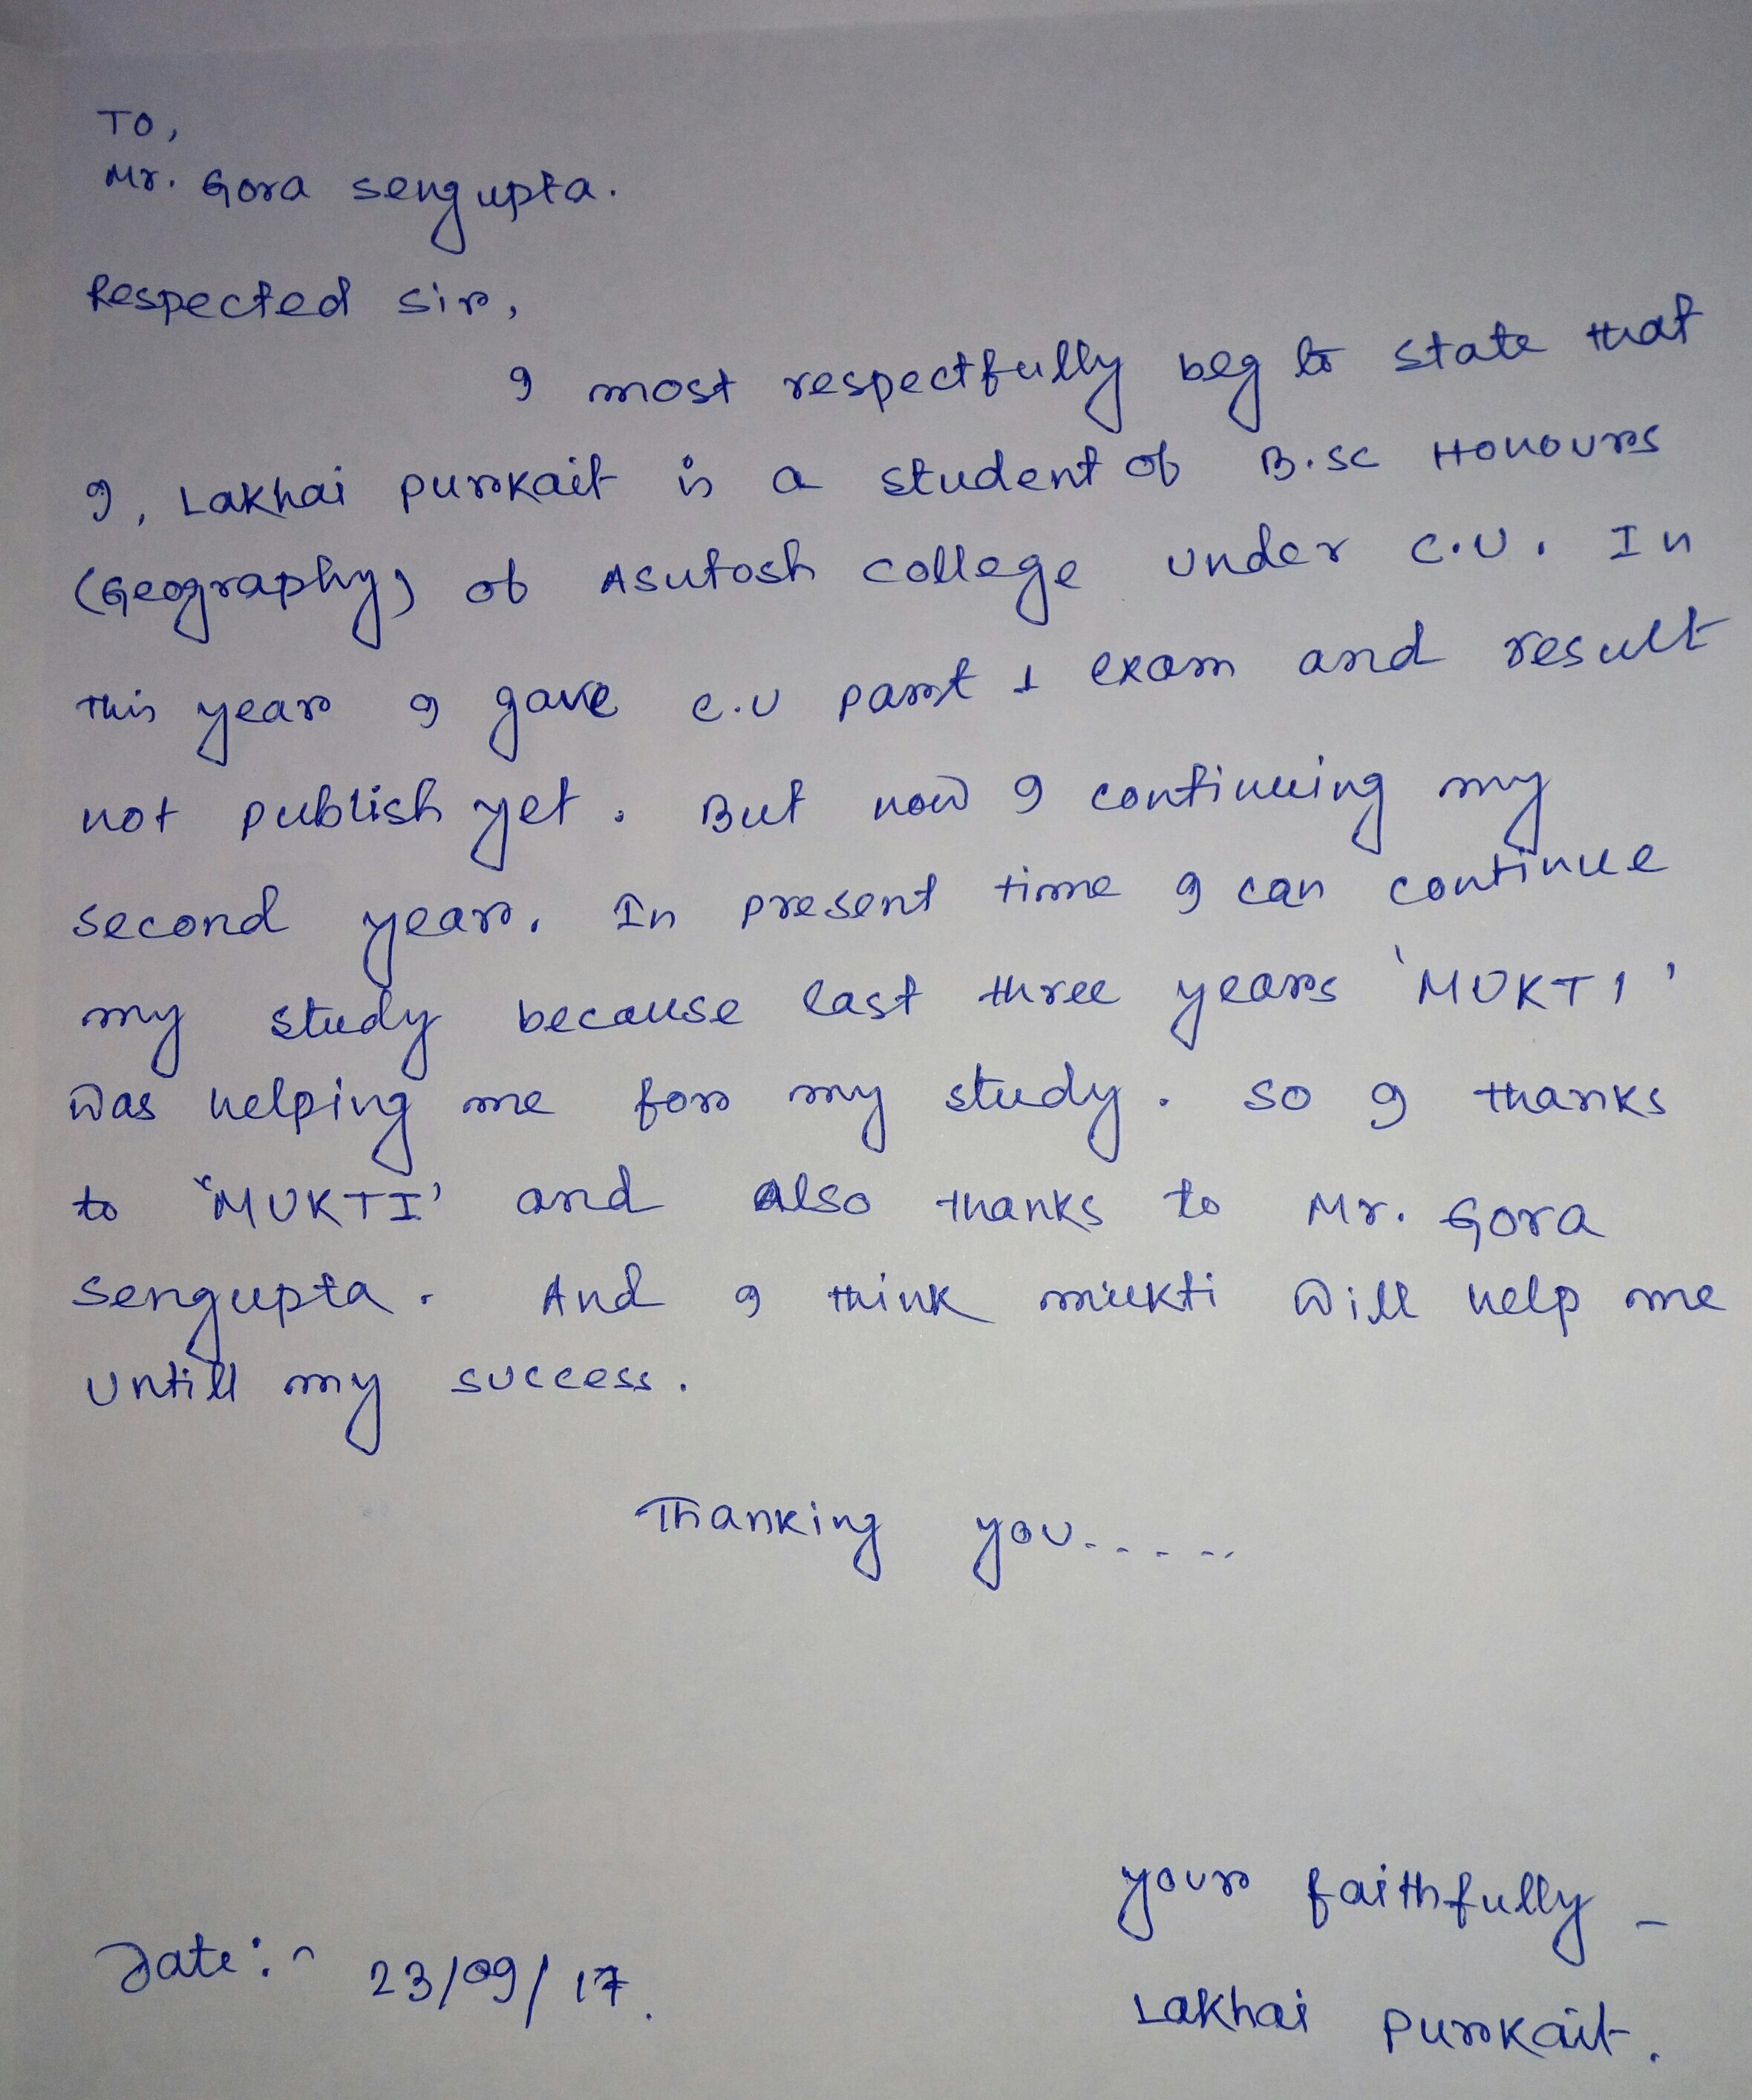 TO,
Mr. Gora sengupta.
Respected sir,
I most respectfully beg to state that
I, Lakhai purkait is a student of B.sc Honours
(Geography) of Asutosh college under C.U. In
this year I gave C.U part I exam and result
not publish yet. But now I continuing my
second year. In present time I can continue
my study because last three years 'MUKTI'
was helping me for my study. so I thanks
to 'MUKTI' and also thanks to Mr. Gora
sengupta. And I think mukti will help me
untill my success.
Thanking you.....
your faithfully -
Date:- 23/09/17.
Lakhai purkait.